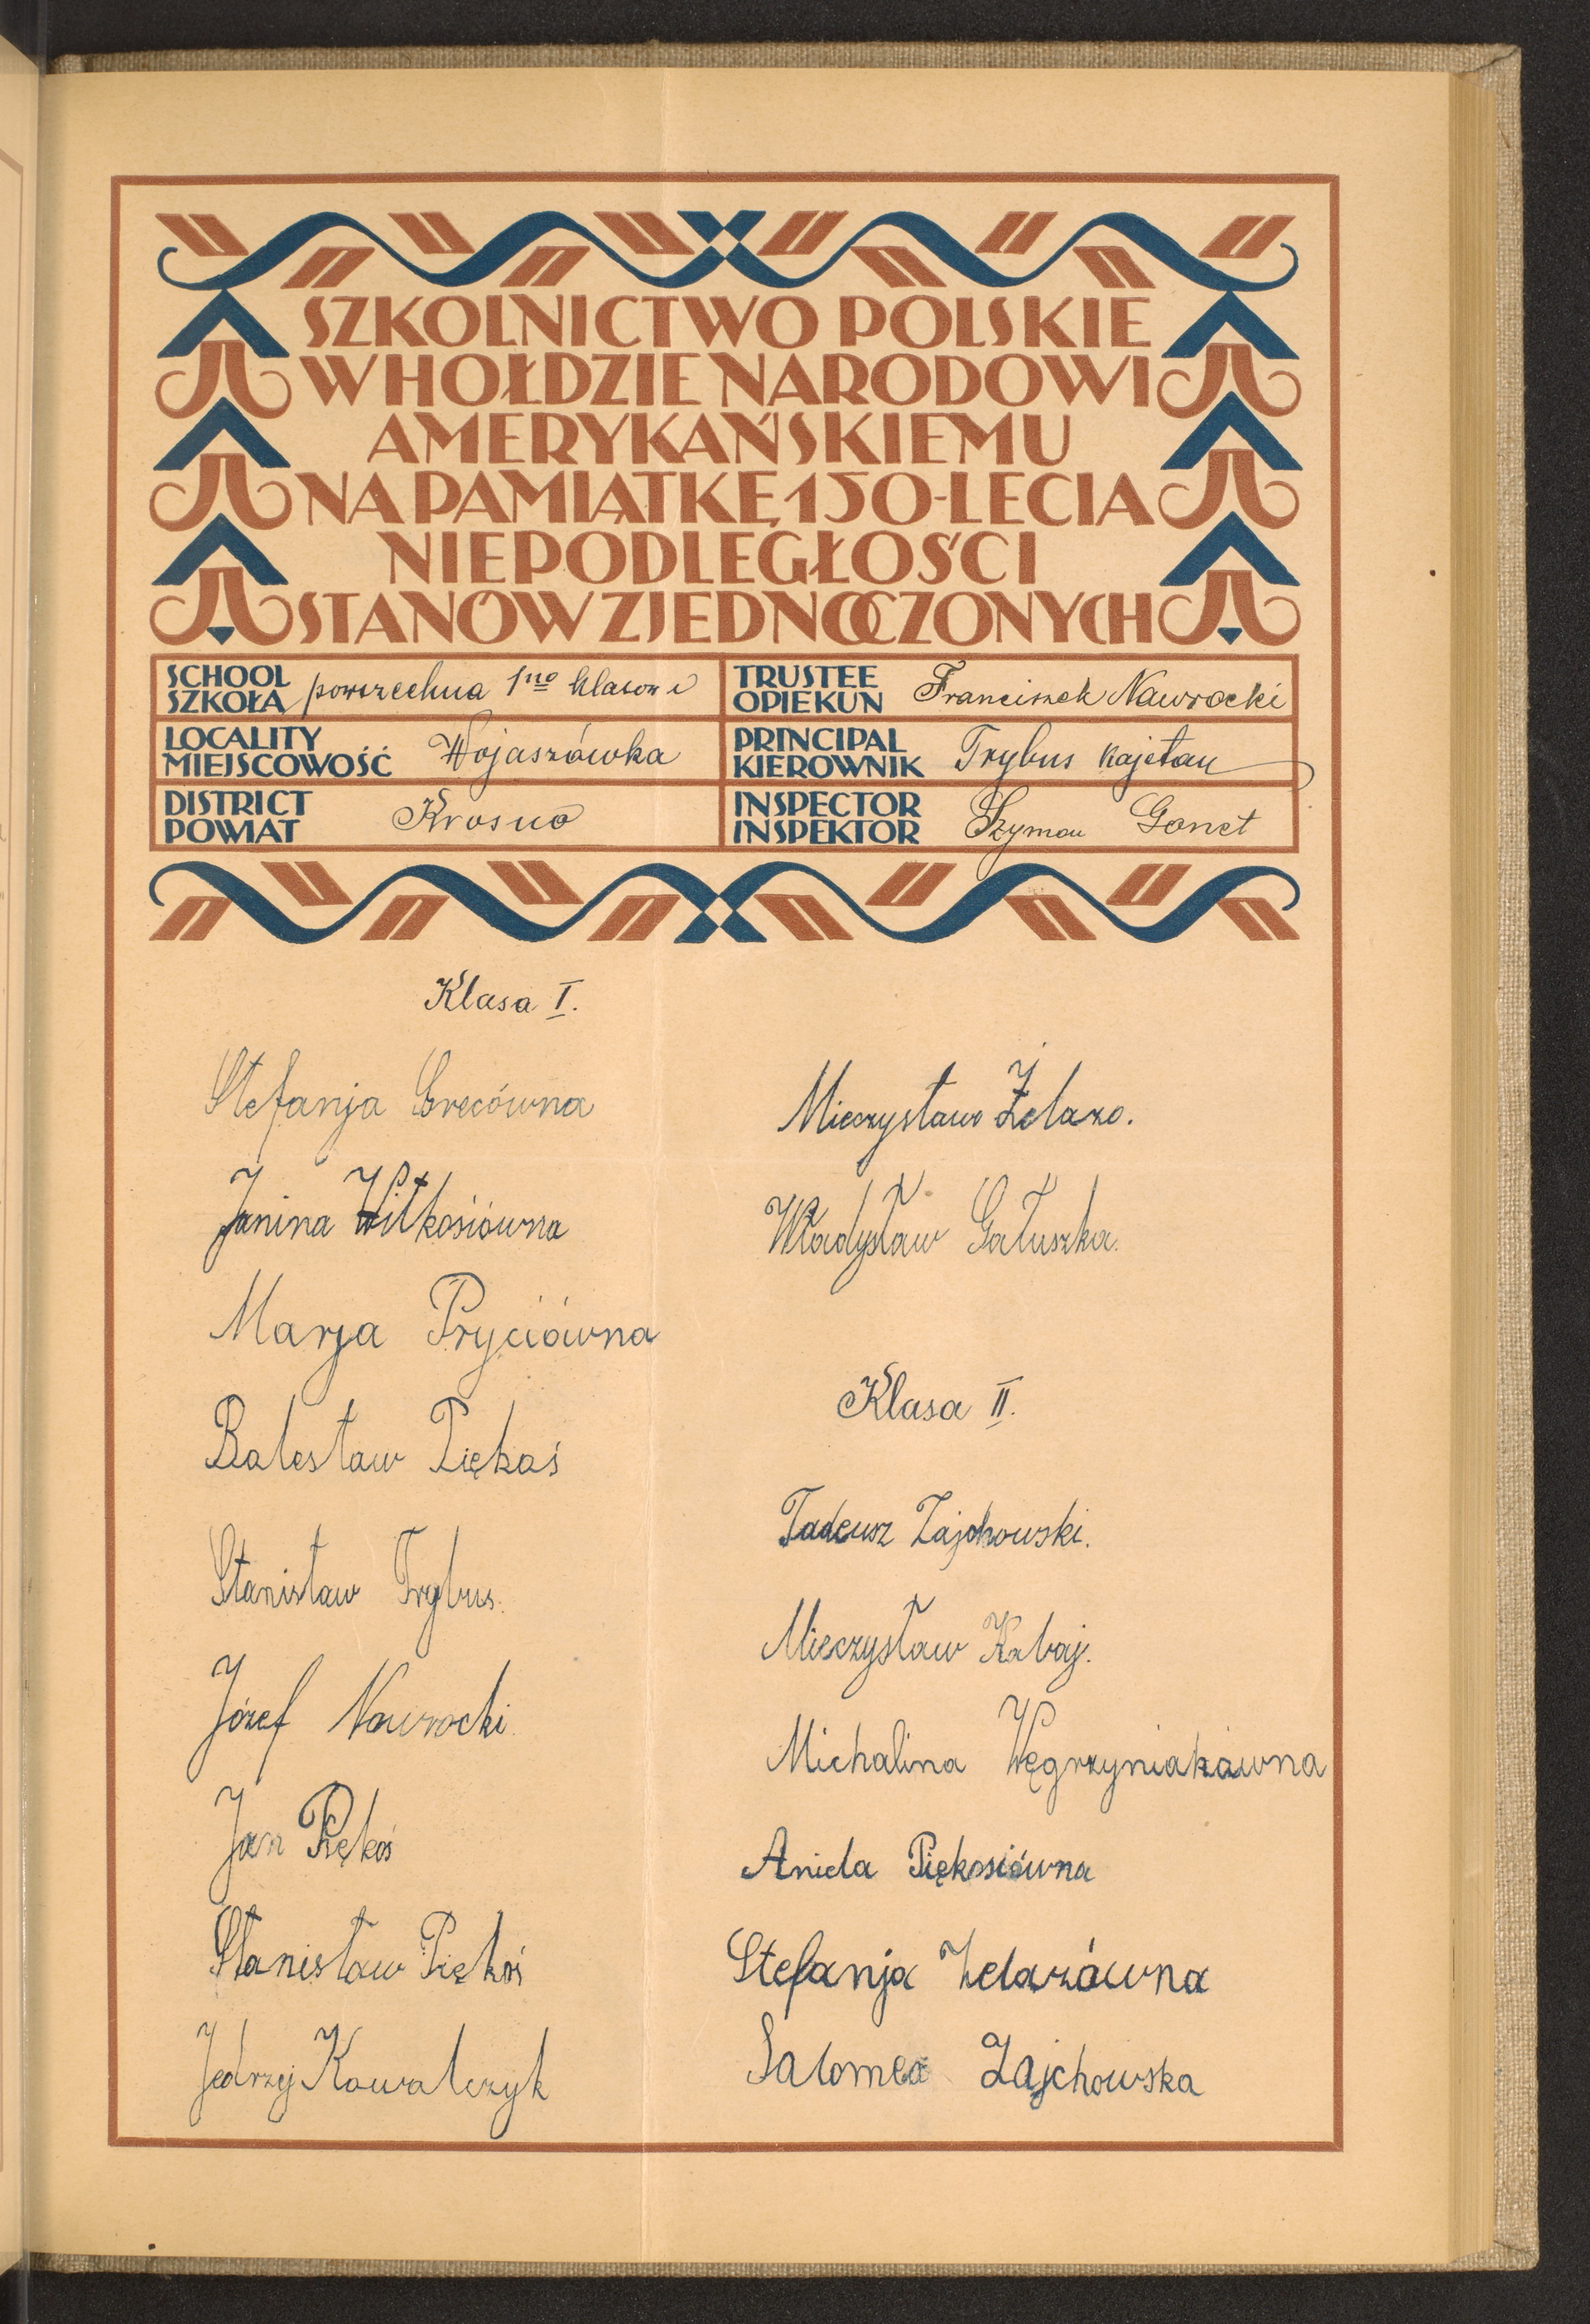 SZKOLNICTWO POLSKIE
W HOŁDZIE NARODOWI
AMERYKAŃSKIEMU
NA PAMIĄTKĘ 150-LECIA
NIEPODLEGŁOŚCI
STANÓW ZJEDNOCZONYCH
SCHOOL
SZKOŁA powszechna 1no klasowa
LOCALITY
MIEJSCOWOŚĆ Wojaszówka
DISTRICT
POWIAT Krosno
TRUSTEE
OPIEKUN Franciszek Nawrocki
PRINCIPAL
KIEROWNIK Trybus Kajetan
INSPECTOR
INSPEKTOR Szymon Gonet
Klasa I.
Stefanja Grecówna
Janina Witkośiówna
Marja Pryciówna
Bolesław Piękoś
Stanisław Trybus.
Józef Nawrocki
Jan Piękoś
Stanisław Piękoś
Jędrzej Kowalczyk
Mieczysław Żelazo.
Władysław Gałuszka.
Klasa II.
Tadeusz Zajchowski.
Mieczysław Kabaj.
Michalina Węgrzyniakówna
Aniela Piękosiówna
Stefanja Żelazówna
Salomea Zajchowska